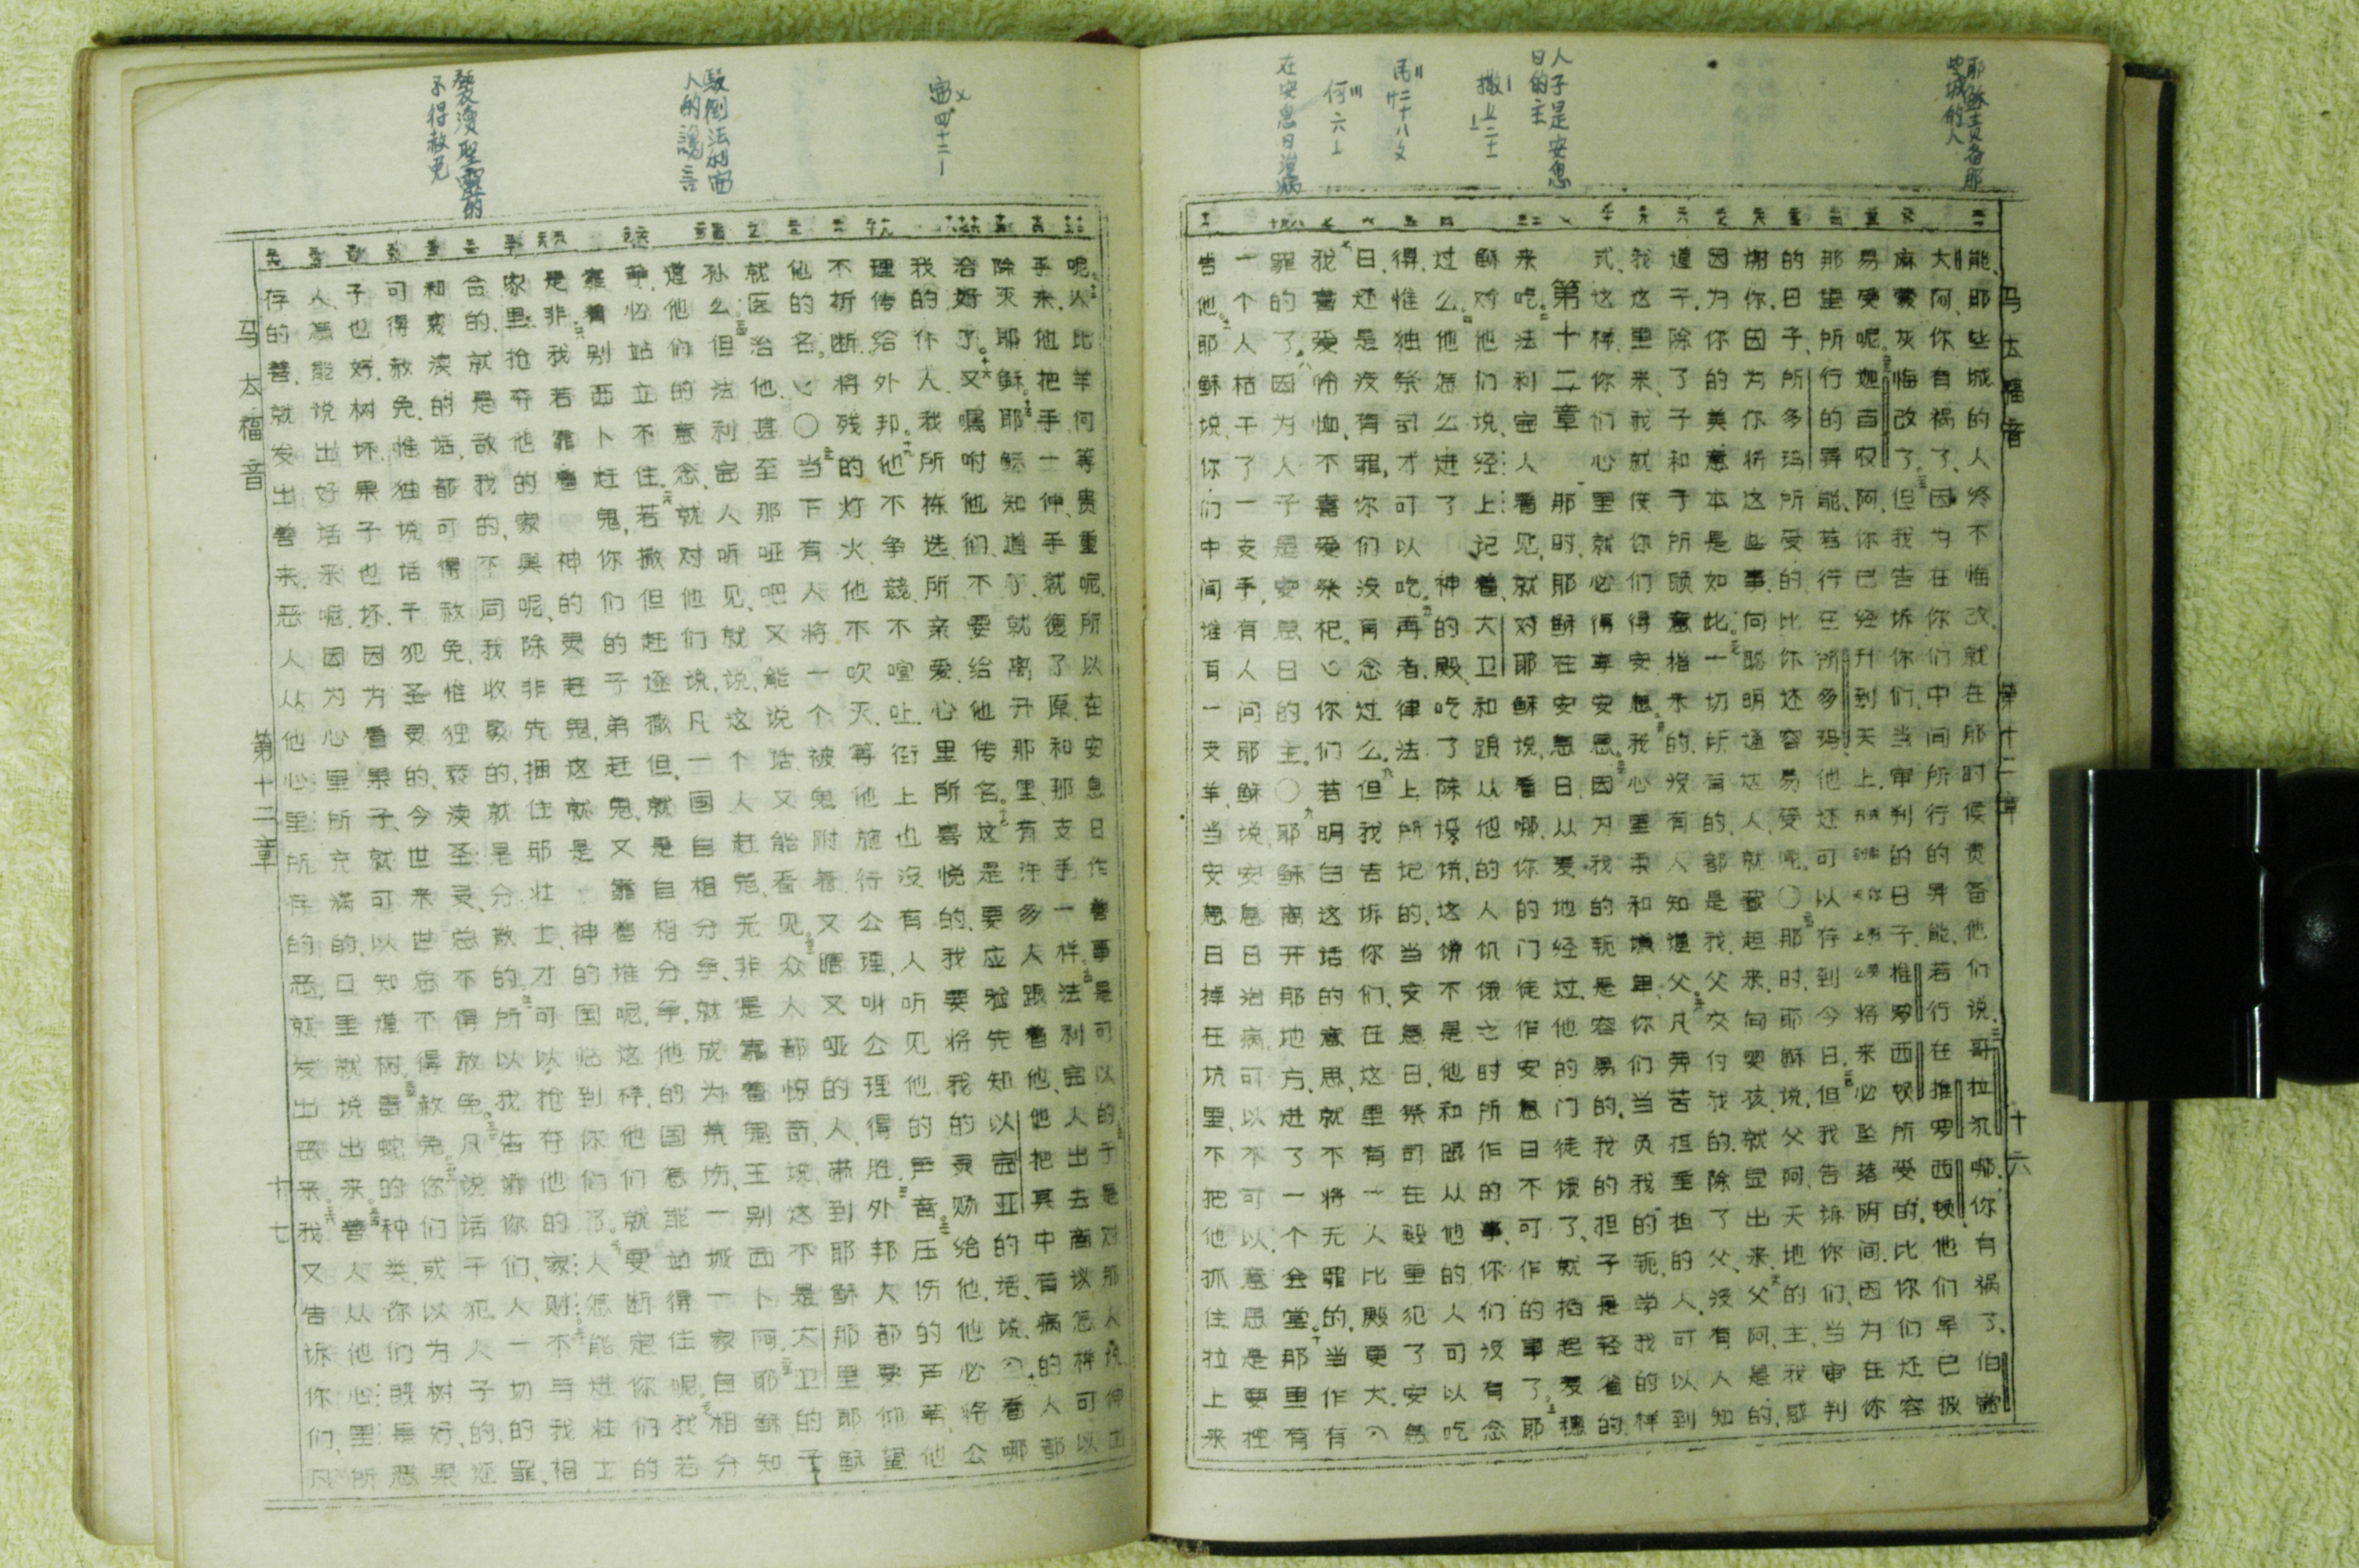 耶稣责备那些城的人
人子是安息日的主
撒上二十一
民二十八
何六
在安息日治病
马太福音 第十二章 十六
能、耶些城的人终不悔改、就在那时候责备他们说、哥拉汛哪、你有祸了、伯赛
大阿、你有祸了、因为在你们中间所行的异能、若行在推罗西顿、他们早已披
麻蒙灰悔改了。但我告诉你们、当审判的日子、推罗西顿所受的、比你们还容
易受呢。迦百农阿、你已经升到天上、将来必坠落阴间、因为在你
那里所行的异能、若行在所多玛、他还可以存到今日。但我告诉你们、当审判
的日子、所多玛所受的、比你还容易受呢。〇那时、耶稣说、父阿、天地的主、我感
谢你、因为你将这些事、向聪明通达人、就藏起来、向婴孩、就显出来。父阿、是的、
因为你的美意本是如此。一切所有的、都是我父交付我的、除了父、没有人知
道子、除了子和子所愿意指示的、没有人知道父。凡劳苦担重担的人、可以到
我这里来、我就使你们得安息。我心里柔和谦卑、你们当负我的轭、学我的样
式、这样你们心里就必得享安息。因为我的轭是容易的、我的担子是轻省的
第十二章 那时、耶稣在安息日、从麦地经过、他的门徒饿了、就掐起麦穗
来吃。法利赛人看见、就对耶稣说、看哪、你的门徒作安息日不可作的事了。耶
稣对他们说、经上记着、大卫和跟从他的人饥饿之时所作的事、你们没有念
过么。他怎么进了神的殿、吃了陈设饼、这饼不是他和跟从他的人可以吃
得、惟独祭司才可以吃。再者、律法上所记的、当安息日、祭司在殿里犯了安息
日、还是没有罪、你们没有念过么、但我告诉你们、在这里有一人比殿更大。
我喜爱怜恤、不喜爱祭祀。你们若明白这话的意思、就不将无罪的、当作有
罪的了。因为人子是安息日的主。〇耶稣离开那地方、进了一个会堂。那里有
一个人枯干了一支手、有人问耶稣说、安息日治病、可以不可以、意思是要控
告他。耶稣说、你们中间谁有一支羊、当安息日掉在坑里、不把他抓住拉上来
赛四十二
驳倒法利赛人的谗言
亵渎聖靈的不得赦免
呢、人比羊何等贵重呢、所以在安息日作善事是可以的。于是对那人说、伸出
手来、他把手一伸、手就复了原、和那支手一样。法利赛人出去商议怎样可以
除灭耶稣。耶稣知道了、就离开那里、有许多人跟着他、他把其中有病的人都
治好了。又嘱咐他们、不要给他传名。这是要应验先知以赛亚的话、说、看哪
我的仆人、我所拣选、所亲爱、心里所喜悦的、我要将我的灵赐给他、他必将公
理传给外邦。他不争競、不喧吐、街上也没有人听见他的声音。压伤的芦苇、他
不折断、将残的灯火、他不吹灭、等他施行公理、叫公理得胜。外邦都要仰望
他的名。〇当下有人将一个被鬼附着、又瞎又哑的人、带到耶稣那里、耶稣
就医治他、甚至那哑吧又能说话、又能看见。众人都惊奇、说、这不是大卫的子
孙么。但法利赛人听见、就说、这个人赶鬼、无非是靠着鬼王别西卜阿。耶稣知
道他们的意念、就对他们说、凡一国自相分争、就成为荒场、一城一家自相分
争、必站立不住。若撒但赶逐撒但、就是自相分争、他的国怎能站得住呢。我若
靠着别西卜赶鬼、你们的子弟赶鬼、又靠着谁呢、这样、他们就要断定你们的
是非。我若靠着神的灵赶鬼、这就是神的国临到你们了。人怎能进壮士
家里、抢夺他的家具呢、除非先捆住那壮士、才可以抢夺他的家财。不与我相
合的、就是敌我的、不同我收聚的、就是分散的。所以我告诉你们、人一切的罪
和亵渎的话、都可得赦免、惟独亵渎圣灵、总不得赦免。凡说话干犯人子的还
可得赦免、惟独说话干犯圣灵的、今世来世总不得赦免。你们或以为树好、果
子也好、树坏、果子也坏、因为看果子、就可以知道树。毒蛇的种类、你们既是恶
人、怎能说出好话来呢、因为心里所充满的、口里就说出来。善人从他心里所
存的善、就发出善来、恶人从他心里所存的恶、就发出恶来。我又告诉你们、凡
马太福音 第十二章 十七